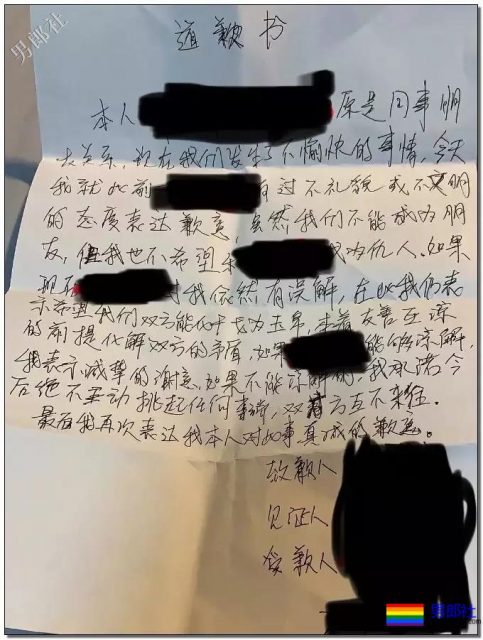 男郎社
道歉书
本人 原是同事朋
友关系，现在我们发生了不愉快的事情，今天
我就此前 有过不礼貌或不文明
的态度表达歉意，虽然我们不能成为朋
友，但我也不希望和 成为仇人．如果
现在 对我依然有误解，在此我仍表
示希望我们双方能化干戈为玉帛，本着友善互谅
的前提化解双方的矛盾，如果 能够谅解，
我表示诚挚的谢意，如果不能谅解的，我承诺今
后绝不主动挑起任何事端，双方互不来往．
最后我再次表达我本人对此事真诚的歉意。
致歉人
见证人
受歉人
男郎社